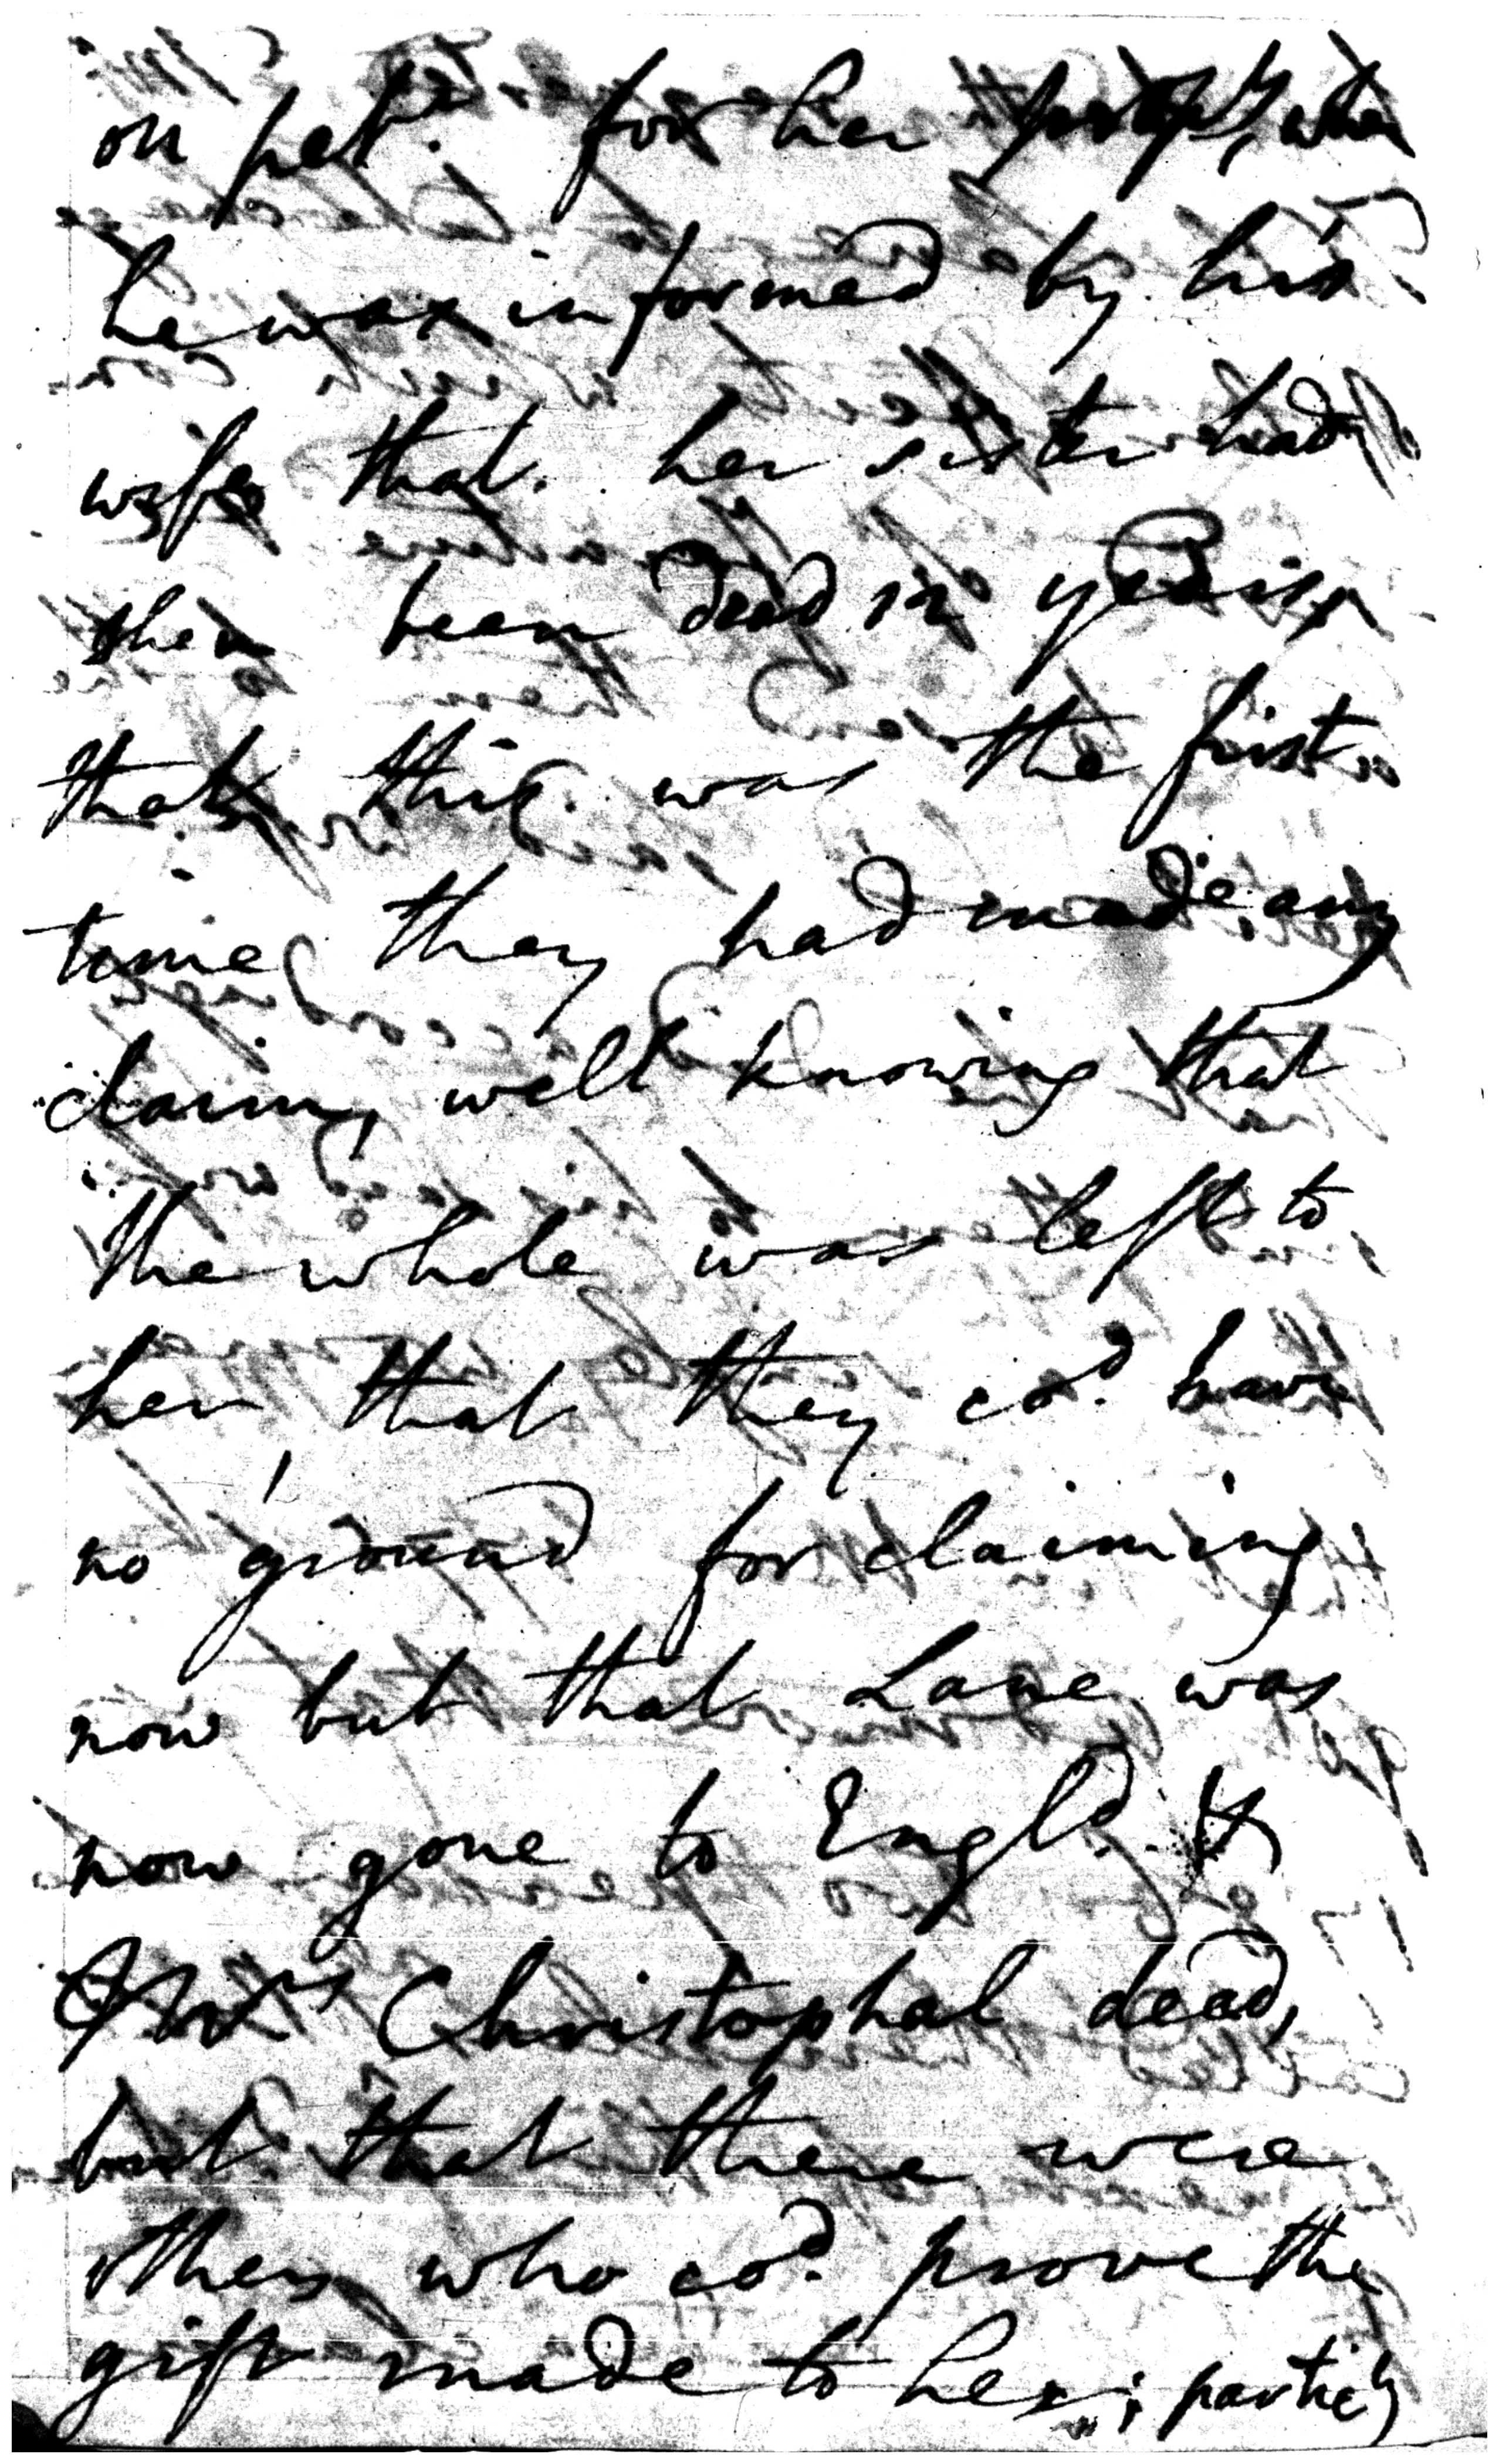 on pet.n for her propty, when
he was informed by his
wife that her sister had
then been dead 12 years,
that this was the first
time they had made any
claim, well knowing that
the whole was left to
her, that they cod. have
no ground for claiming
now but that Lane was
now gone to Engld. &
Mrs Christophal dead,
but that there were
others who cod. prove the
gift made to her; partic'y